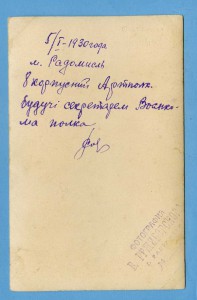 5/I-1930 года
м. Радомисль
8 корпусний Артполк
будучі секретарем Военко-
ма полка
фотограф